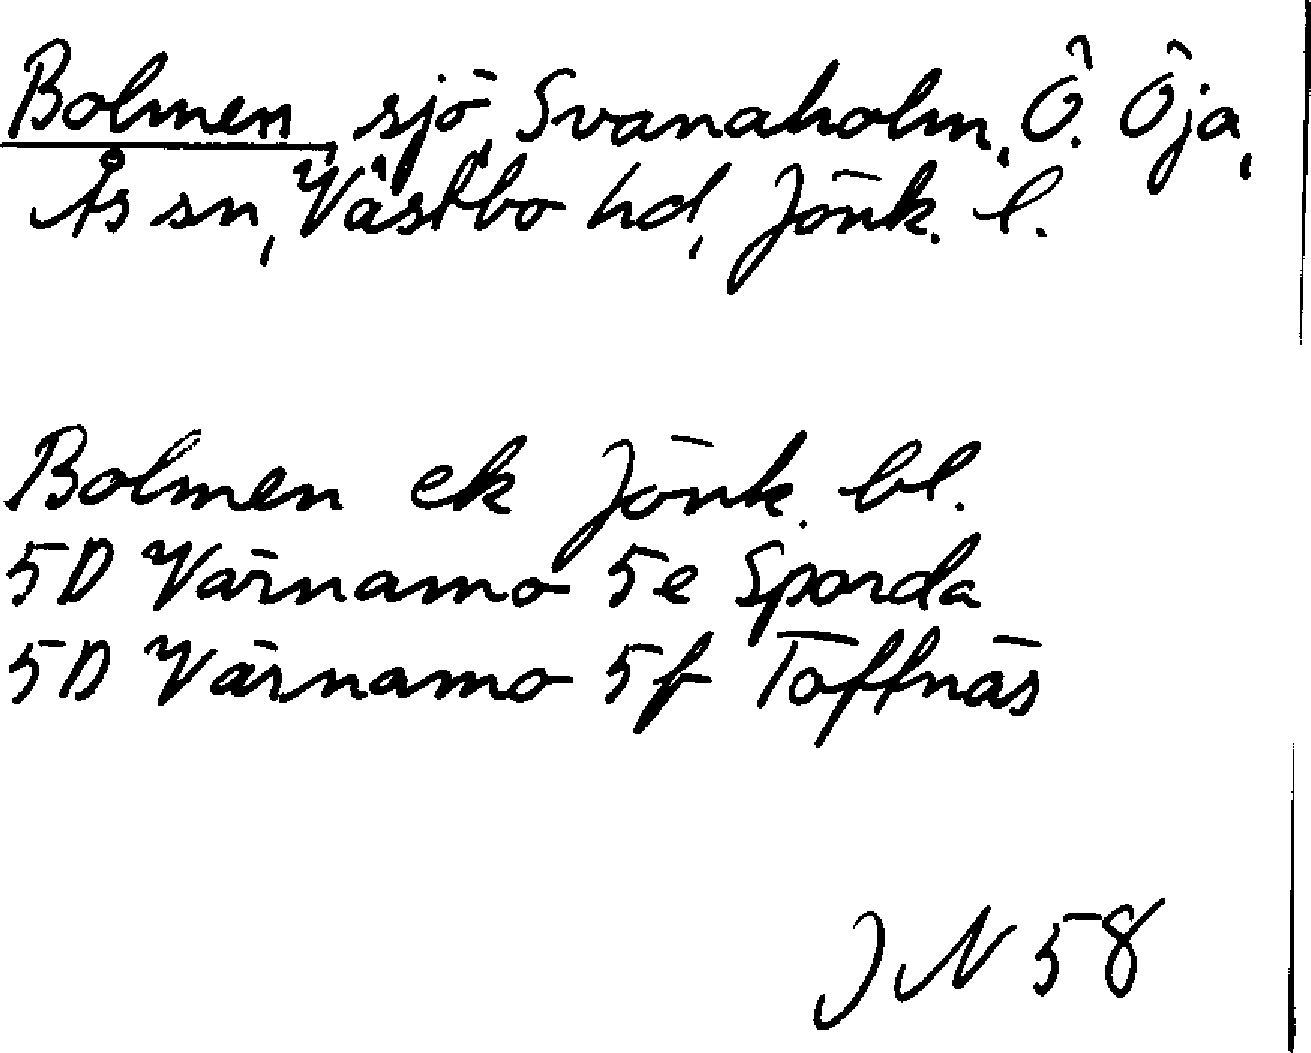 Bolmen, sjö, Svanaholm, Ö. Öja,
Ås sn, Västbo hd, Jönk. l.
Bolmen ek Jönk. bl.
5D Värnamo 5e Sporda
5D Värnamo 5f Toftnäs
JN 58